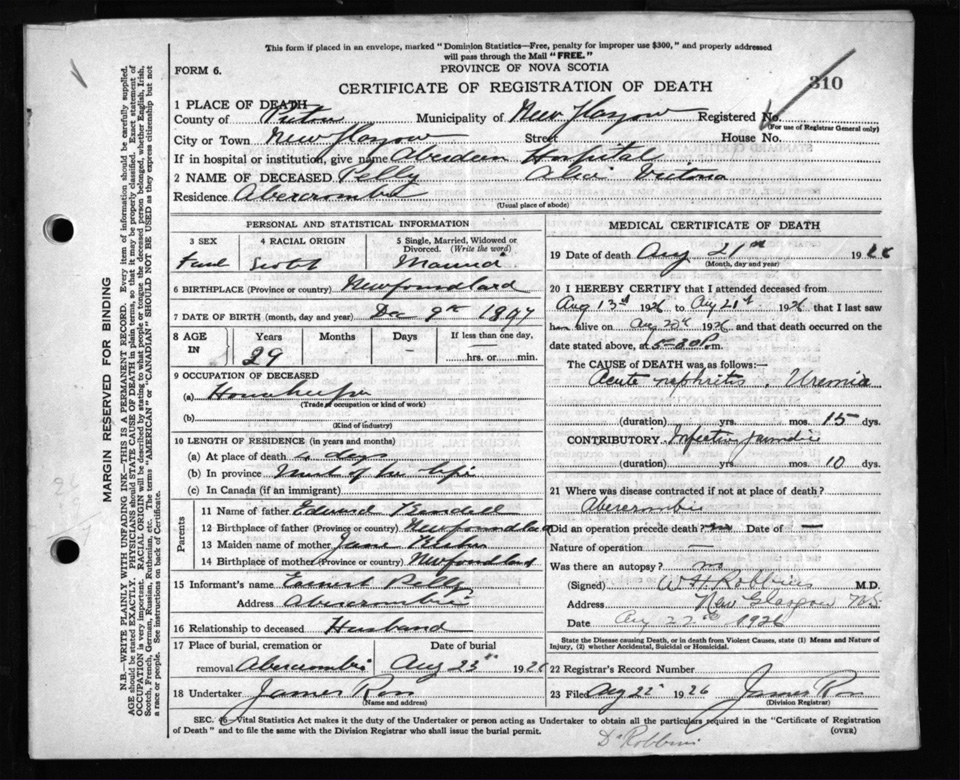 This form if placed in an envelope, marked "Dominion Statistics—Free, penalty for improper use $300," and properly addressed
will pass through the Mail "FREE."
FORM 6.
PROVINCE OF NOVA SCOTIA
310
CERTIFICATE OF REGISTRATION OF DEATH
1 PLACE OF DEATH
County of Pictou Municipality of New Glasgow Registered No.
(For use of Registrar General only)
City or Town New Glasgow Street House No.
If in hospital or institution, give name Aberdeen Hospital
2 NAME OF DECEASED Pelly Alice Victoria
Residence Abercrombie
(Usual place of abode)
PERSONAL AND STATISTICAL INFORMATION
3 SEX 4 RACIAL ORIGIN 5 Single, Married, Widowed or Divorced. (Write the word)
Scotch Married
6 BIRTHPLACE (Province or country) Newfoundland
7 DATE OF BIRTH (month, day and year) Dec 9th 1897
8 AGE IN Years Months Days If less than one day,
29 – hrs. or min.
9 OCCUPATION OF DECEASED
(a) Housekeeper
(Trade or occupation or kind of work)
(b)
(Kind of industry)
10 LENGTH OF RESIDENCE (in years and months)
(a) At place of death days
(b) In province Most of her life
(c) In Canada (if an immigrant)
Parents
11 Name of father Edward
12 Birthplace of father (Province or country) Newfoundland
13 Maiden name of mother Jane
14 Birthplace of mother (Province or country) Newfoundland
15 Informant's name Ernest Pelly
Address Abercrombie
16 Relationship to deceased Husband
17 Place of burial, cremation or Date of burial
removal Abercrombie Aug 23rd 1926
18 Undertaker James
(Name and address)
MEDICAL CERTIFICATE OF DEATH
19 Date of death Aug 21st 1926
(Month, day and year)
20 I HEREBY CERTIFY that I attended deceased from
Aug 13th 1926 to Aug 21st 1926 that I last saw
her alive on Aug 20th 1926 and that death occurred on the
date stated above, at 5-30 P.m.
The CAUSE OF DEATH was as follows:—
Acute nephritis. Uremia
(duration) yrs. mos. 15 dys.
CONTRIBUTORY Infective jaundice
(duration) yrs. mos. 10 dys.
21 Where was disease contracted if not at place of death?
Abercrombie
Did an operation precede death? no Date of —
Nature of operation —
Was there an autopsy? no
(Signed) W. H. Robbins M.D.
Address New Glasgow N.S.
Date Aug 22nd 1926
State the Disease causing Death, or in death from Violent Causes, state (1) Means and Nature of
Injury, (2) whether Accidental, Suicidal or Homicidal.
22 Registrar's Record Number
23 Filed Aug 22 1926 James
(Division Registrar)
SEC. 46—Vital Statistics Act makes it the duty of the Undertaker or person acting as Undertaker to obtain all the particulars required in the "Certificate of Registration
of Death" and to file the same with the Division Registrar who shall issue the burial permit.
(OVER)
Dr Robbins
MARGIN RESERVED FOR BINDING
N.B.—WRITE PLAINLY WITH UNFADING INK—THIS IS A PERMANENT RECORD. Every item of information should be carefully supplied.
AGE should be stated EXACTLY. PHYSICIANS should STATE CAUSE OF DEATH in plain terms, so that it may be properly classified. Exact statement of
OCCUPATION is very important. RACIAL ORIGIN will be described by stating to what people or tongue the deceased person belonged, whether English, Irish,
Scotch, French, German, Russian, Ruthenian, etc. The terms "AMERICAN" or "CANADIAN" SHOULD NOT BE USED as they express citizenship but not
a race or people. See instructions on back of Certificate.